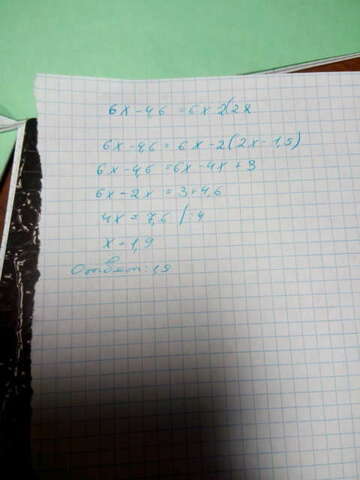 6x-4,6 = 6x-2(2x
6x-4,6 = 6x-2(2x-1,5)
6x-4,6 = 6x-4x+3
6x-2x = 3+4,6
4x = 7,6 / :4
x = 1,9
Ответ: 1,9